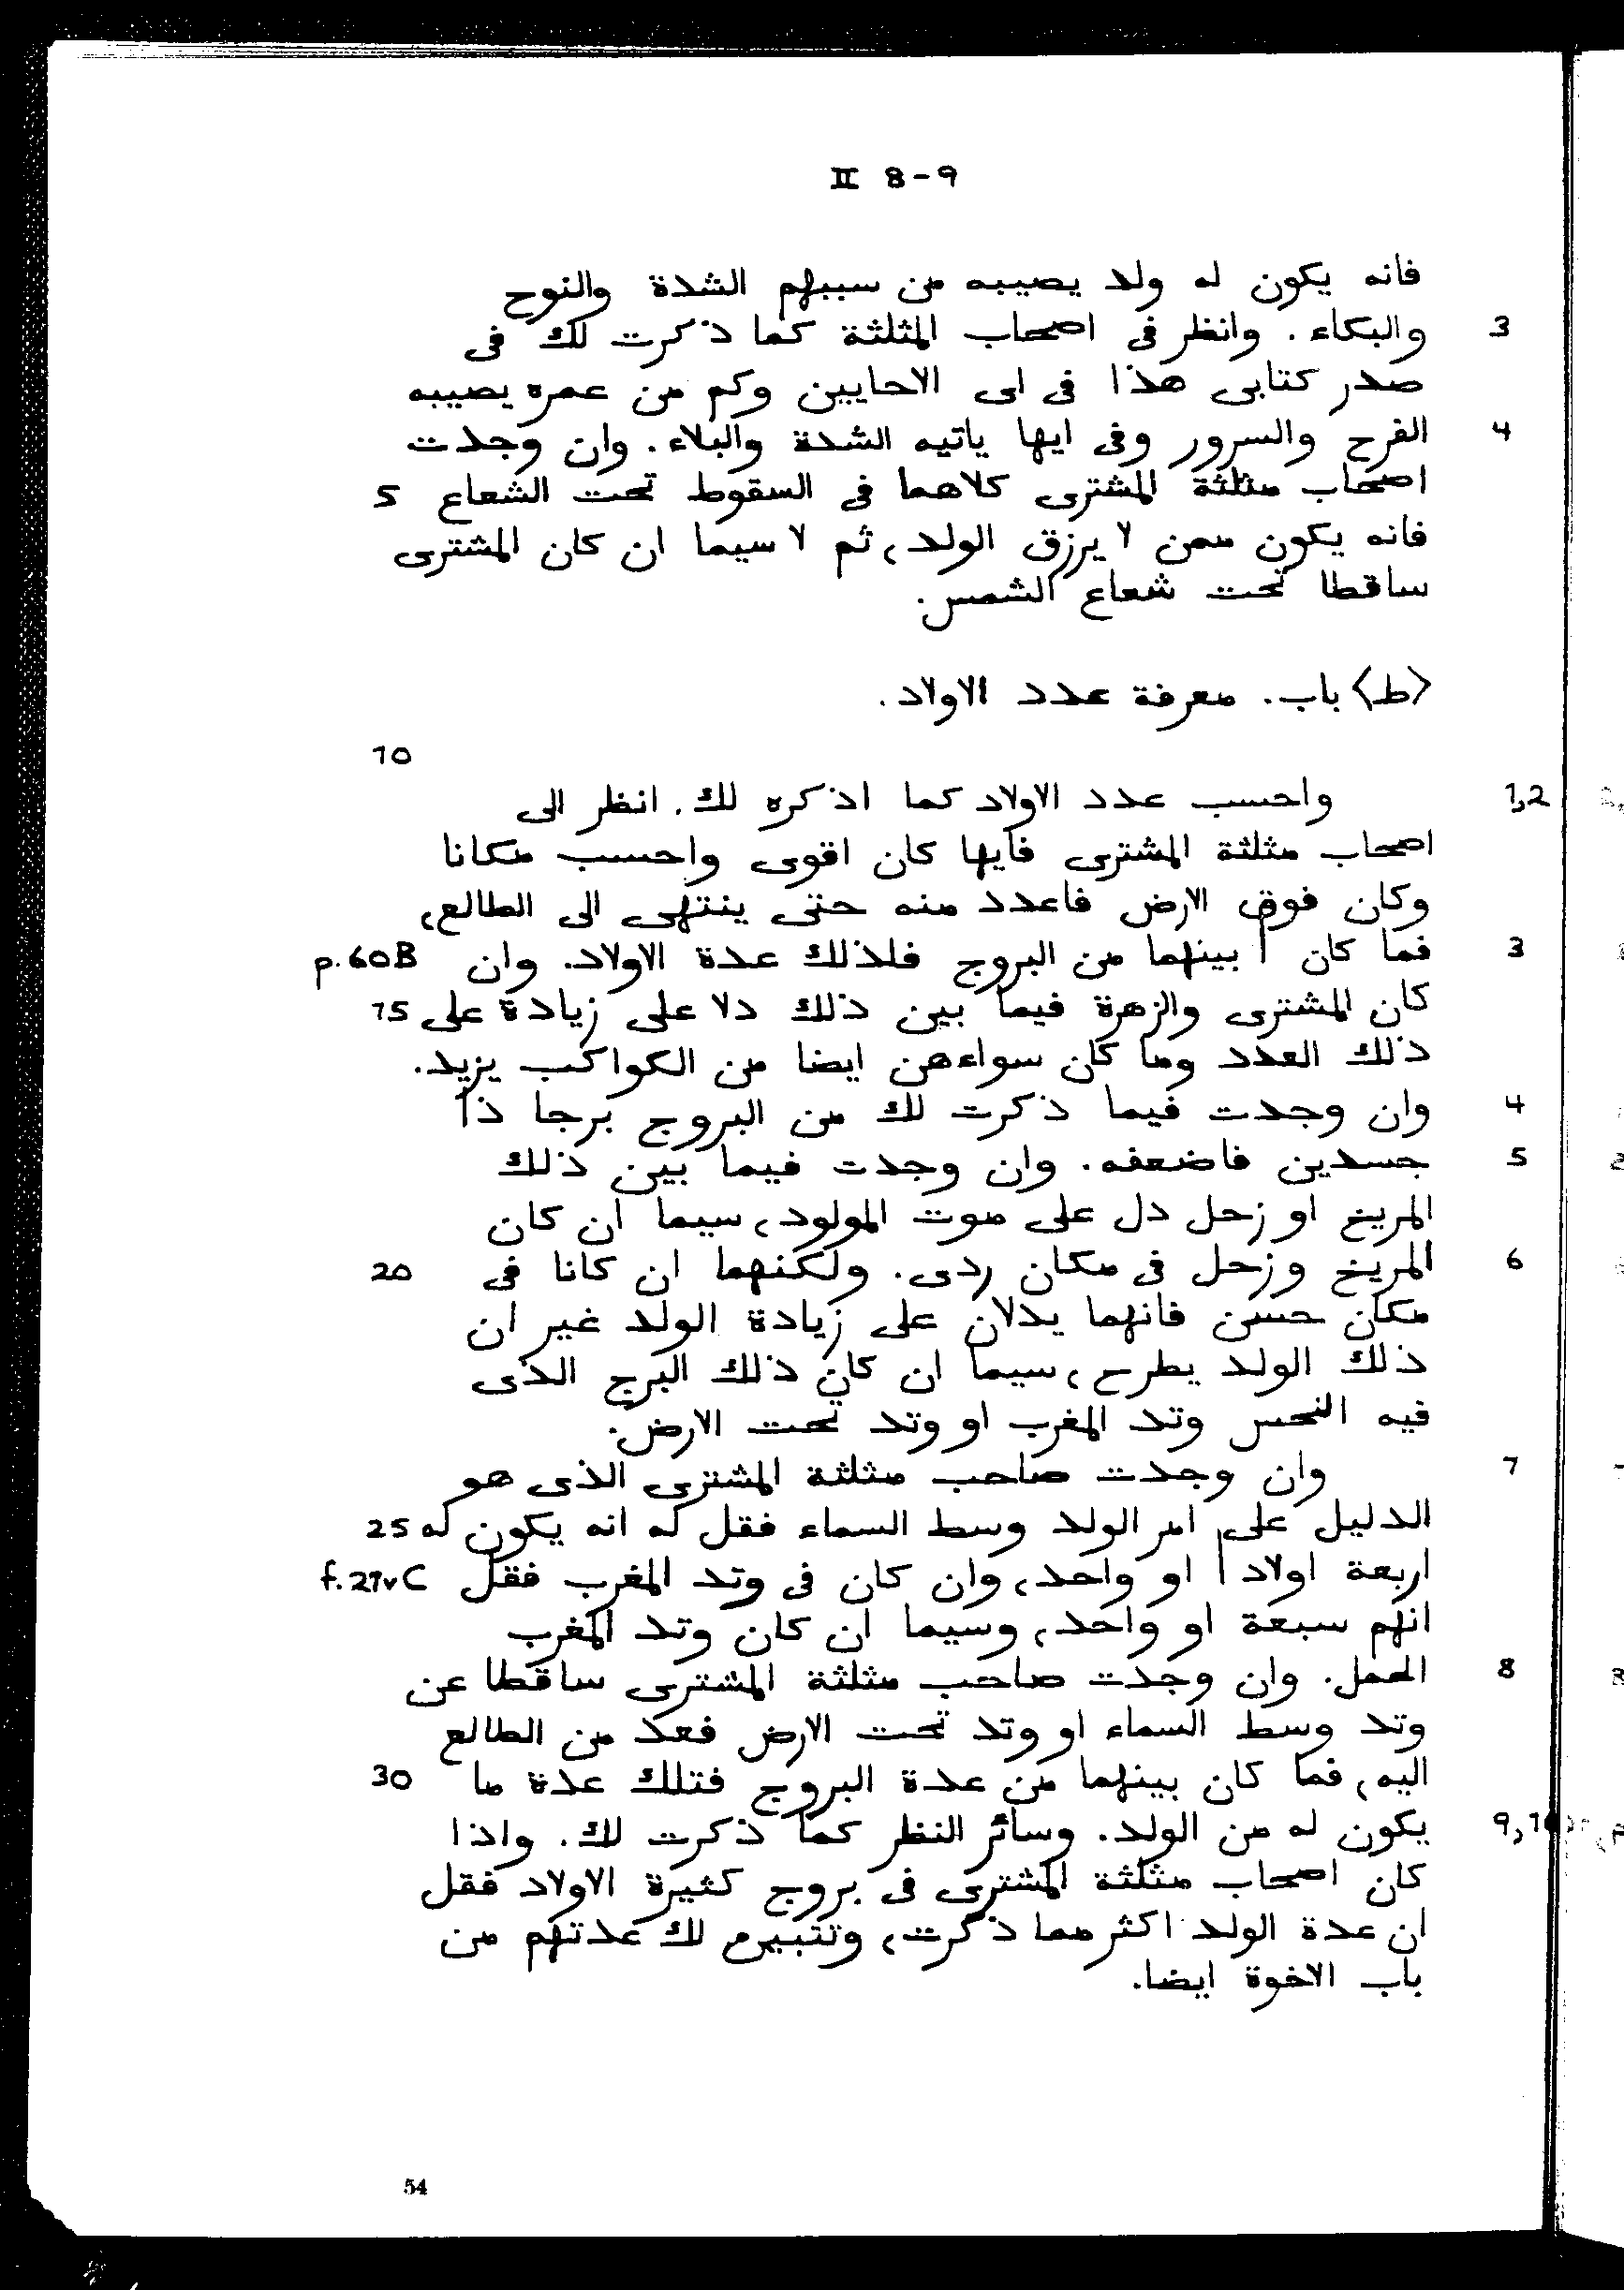 II 8-9
فانه يكون له ولد يصيبه من سببهم الشدة والنوح
3 والبكاء. وانظر فى اصحاب المثلثة كما ذكرت لك فى
صدر كتابى هذا فى اى الاحايين وكم من عمره يصيبه
4 الفرح والسرور وفى ايها ياتيه الشدة والبلاء. وان وجدت
اصحاب مثلثة المشترى كلاهما فى السقوط تحت الشعاع 5
فانه يكون ممن لا يرزق الولد، ثم لا سيما ان كان المشترى
ساقطا تحت شعاع الشمس.
<ط> باب. معرفة عدد الاولاد.
10
1,2 واحسب عدد الاولاد كما اذكره لك. انظر الى
اصحاب مثلثة المشترى فايها كان اقوى واحسب مكانا
وكان فوق الارض فاعدد منه حتى ينتهى الى الطالع،
3 فما كان | بينهما من البروج فلذلك عدة الاولاد. وان p.60B
كان المشترى والزهرة فيما بين ذلك دلا على زيادة على 15
ذلك العدد وما كان سواءهن ايضا من الكواكب يزيد.
4 وان وجدت فيما ذكرت لك من البروج برجا ذا
5 جسدين فاضعفه. وان وجدت فيما بين ذلك
المريخ او زحل دل على موت المولود، سيما ان كان
6 المريخ وزحل فى مكان ردى. ولكنهما ان كانا فى 20
مكان حسن فانهما يدلان على زيادة الولد غير ان
ذلك الولد يطرح، سيما ان كان ذلك البرج الذى
فيه النحس وتد المغرب او وتد تحت الارض.
7 وان وجدت صاحب مثلثة المشترى الذى هو
الدليل على امر الولد وسط السماء فقل له انه يكون له 25
اربعة اولاد | او واحد، وان كان فى وتد المغرب فقل f.29vC
انهم سبعة او واحد، وسيما ان كان وتد المغرب
8 الحمل. وان وجدت صاحب مثلثة المشترى ساقطا عن
وتد وسط السماء او وتد تحت الارض فعد من الطالع
اليه، فما كان بينهما من عدة البروج فتلك عدة ما 30
9,10 يكون له من الولد. وسائر النظر كما ذكرت لك. واذا
كان اصحاب مثلثة المشترى فى بروج كثيرة الاولاد فقل
ان عدة الولد اكثر مما ذكرت، لك عدتهم من
باب الاخوة ايضا.
54